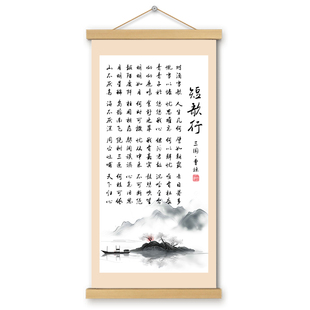 短歌行
三国·曹操
对酒当歌 人生几何 譬如朝露 去日苦多
慨当以慷 忧思难忘 何以解忧 唯有杜康
青青子衿 悠悠我心 但为君故 沉吟至今
呦呦鹿鸣 食野之苹 我有嘉宾 鼓瑟吹笙
明明如月 何时可掇 忧从中来 不可断绝
越陌度阡 枉用相存 契阔谈讌 心念旧恩
月明星稀 乌鹊南飞 绕树三匝 何枝可依
山不厌高 海不厌深 周公吐哺 天下归心